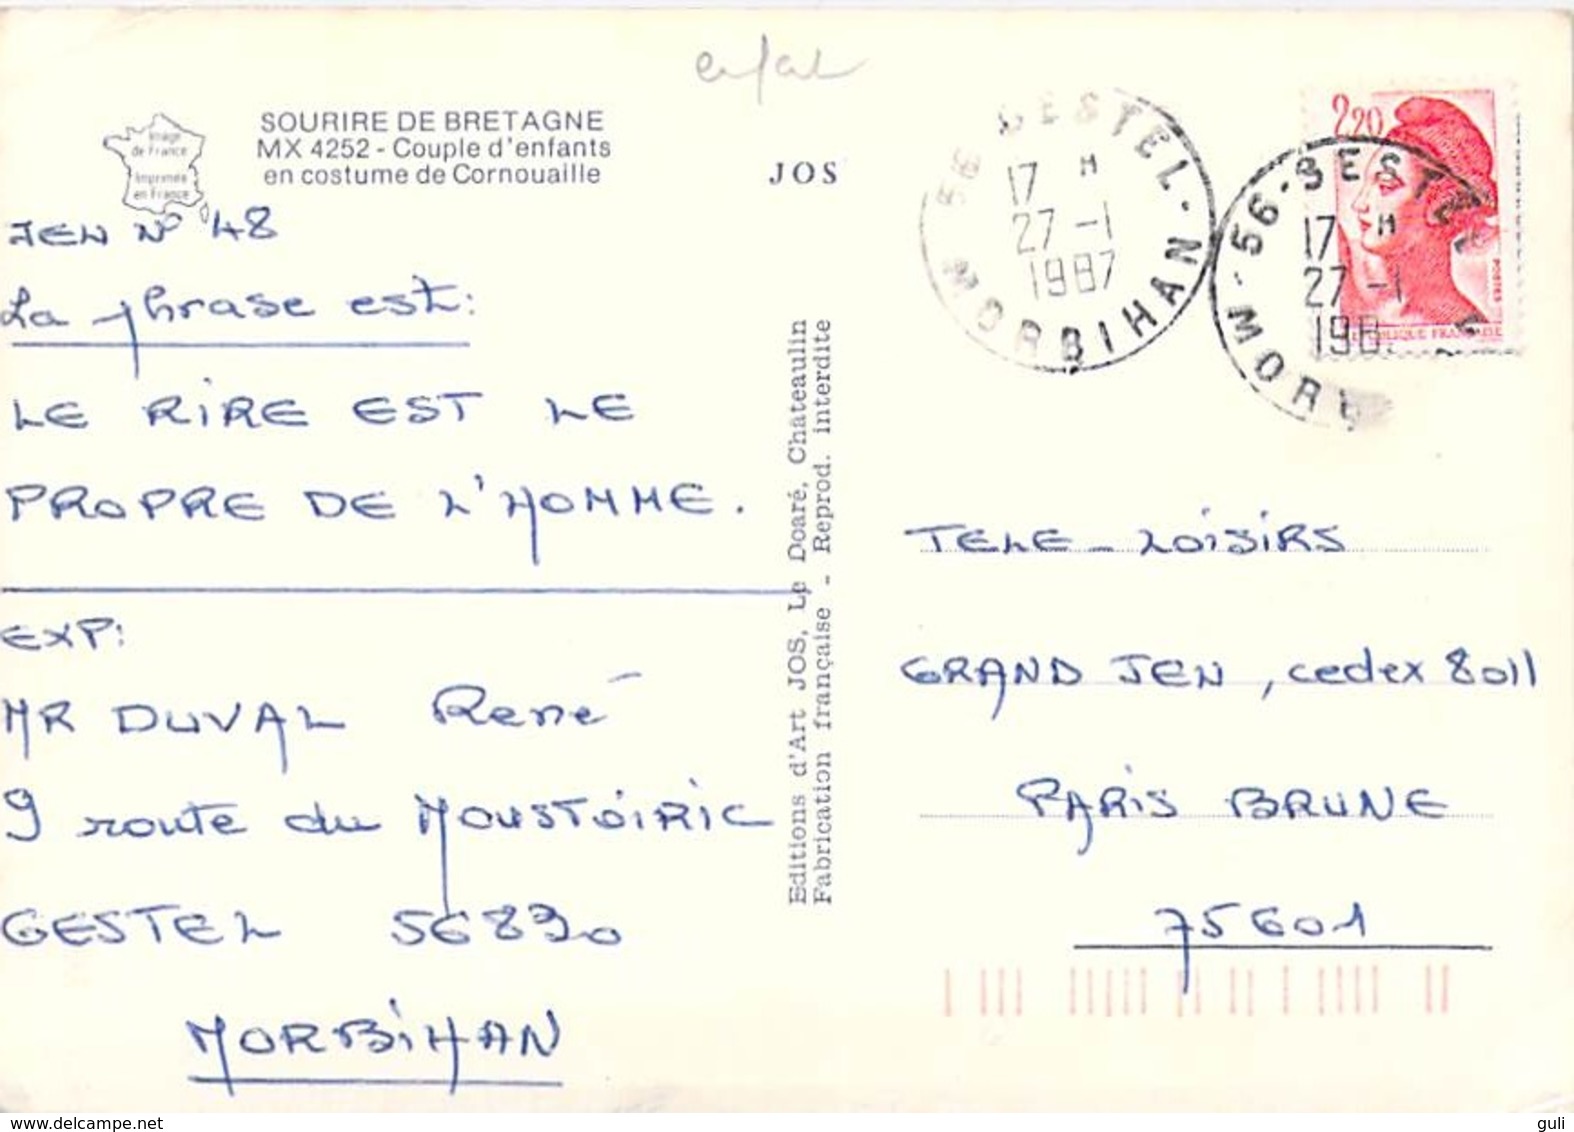 enfal
SOURIRE DE BRETAGNE
MX 4252 - Couple d'enfants
en costume de Cornouaille
Image
de France
Imprimée
en France
JOS
JEU N° 48
La phrase est:
LE RIRE EST LE
PROPRE DE L'HOMME.
EXP:
MR DUVAL René
9 route du MOUSTOIRIC
GESTEL 56890
MORBIHAN
Editions d'Art JOS, Le Doaré, Chateaulin
Fabrication française - Reprod. interdite
56 GESTEL
17 H
27 -1
1987
MORBIHAN
2,20
POSTES
REPUBLIQUE FRANÇAISE
56 - GESTEL
17 H
27 -1
198
MORB
TELE-LOISIRS
GRAND JEU, cedex 8011
PARIS BRUNE
75601
guli